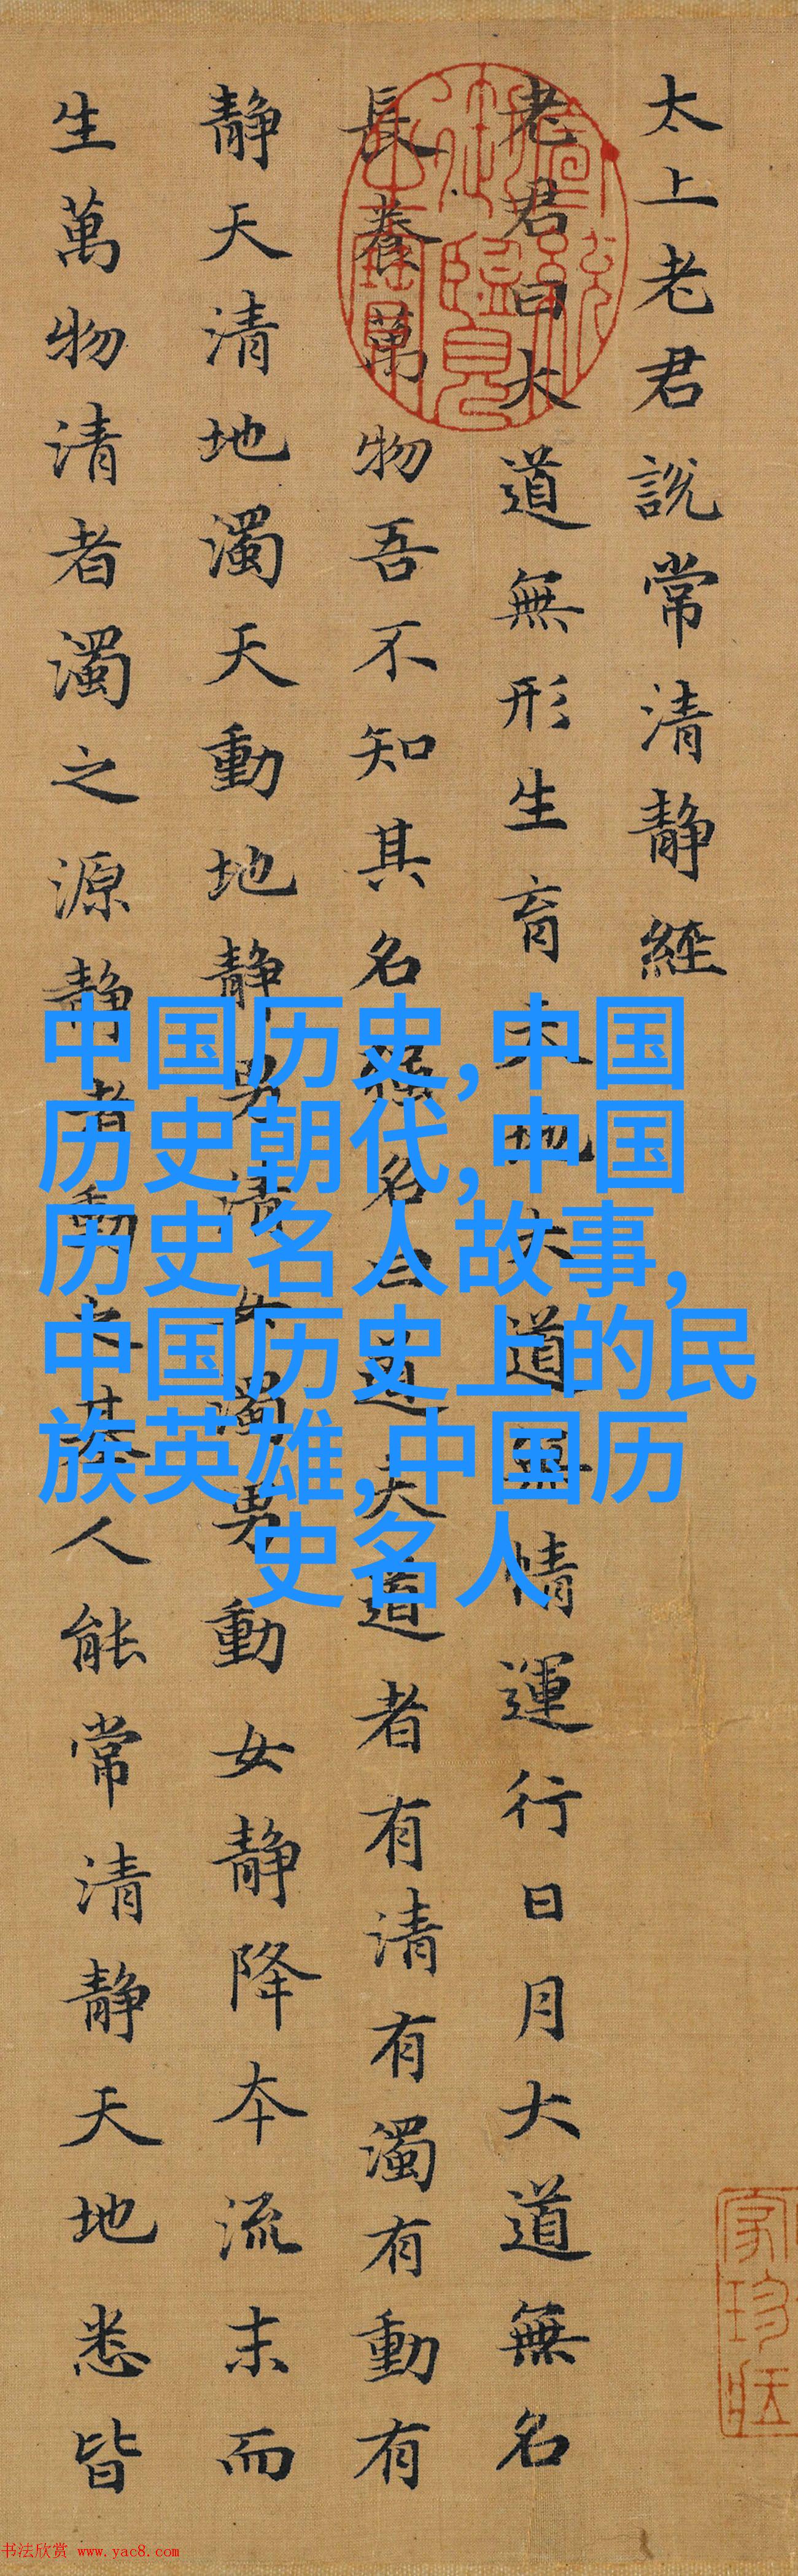 太上老君說常清靜經
老君曰大道無形生育天地大道無情運行日月大道無名
長養萬物吾不知其名強名曰道夫道者有清有濁有動有
靜天清地濁天動地靜男清女濁男動女靜降本流末而
生萬物清者濁之源靜者動之基人能常清靜天地悉皆
宣統
御覽
之寶
中国历史,中国
历史朝代,中国
历史名人故事,
中国历史上的民
族英雄,中国历
史名人
书法欣赏 www.yac8.com